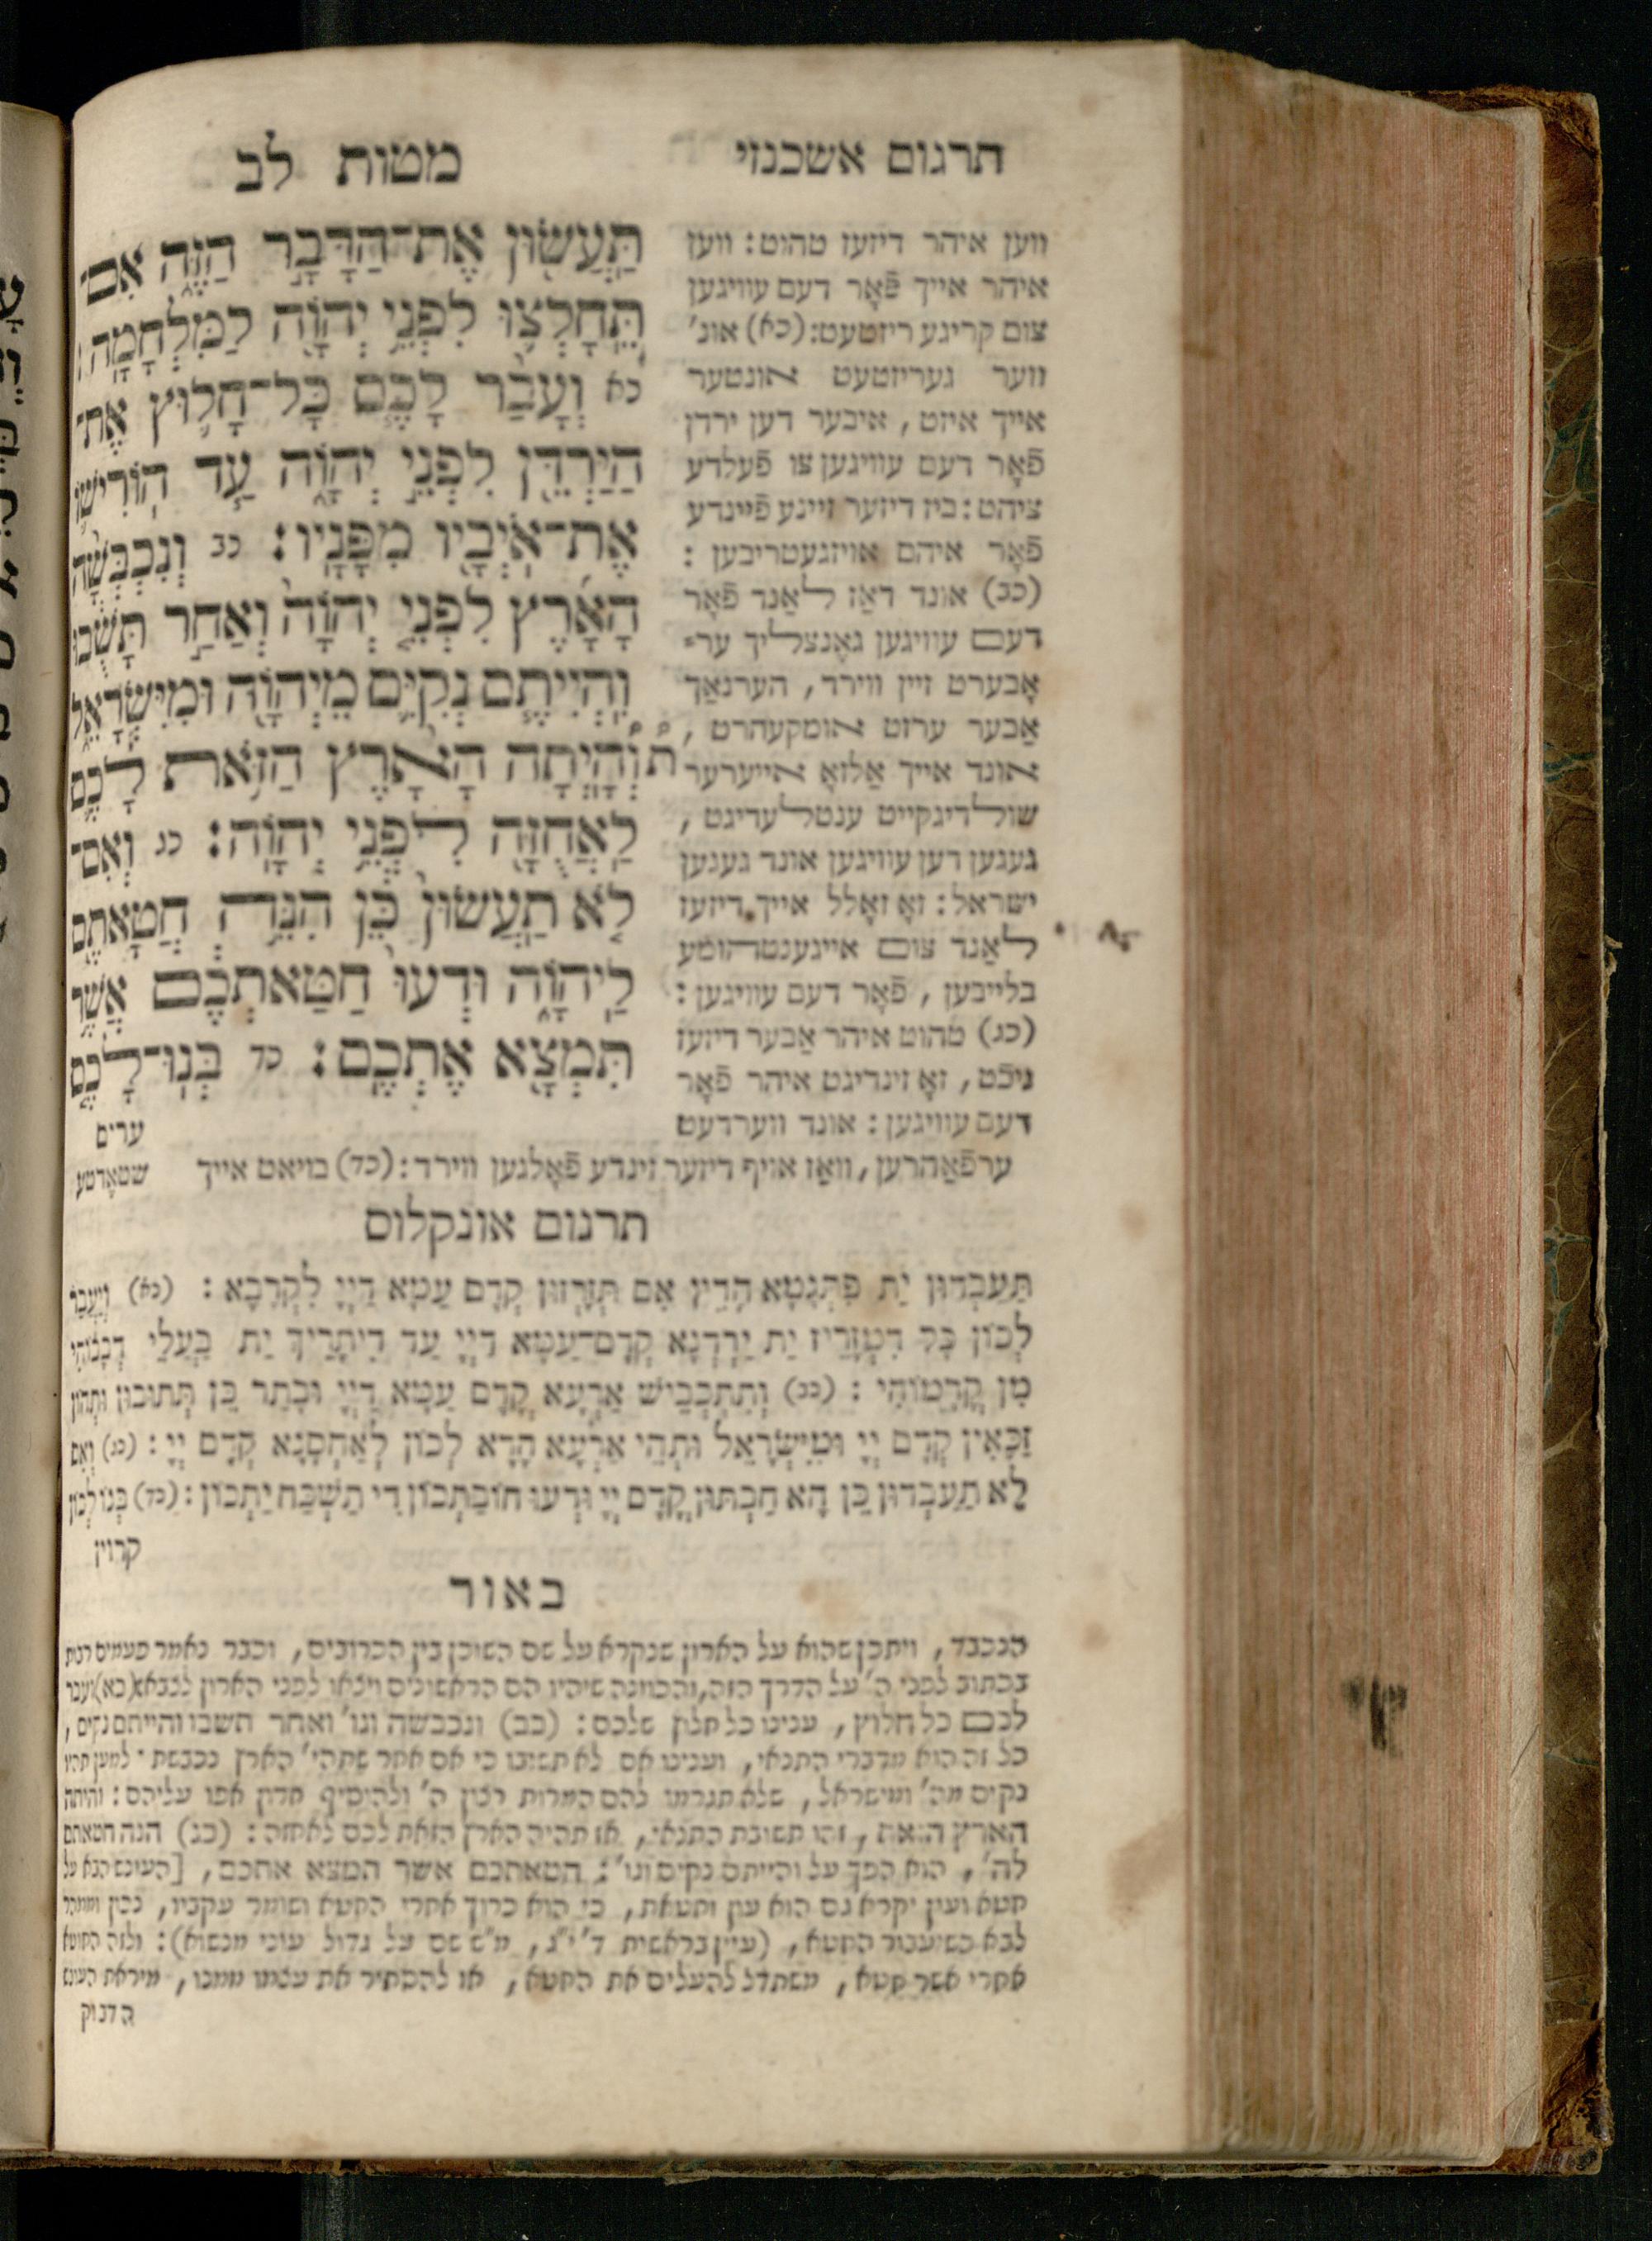 תרגום אשכנזי
מטות לב
תַּעֲשׂוּן אֶת־הַדָּבָר הַזֶּה אִם־
תֵּחָלְצוּ לִפְנֵי יְהוָֹה לַמִּלְחָמָה׃
כא וְעָבַר לָכֶם כָּל־חָלוּץ אֶת־
הַיַּרְדֵּן לִפְנֵי יְהוָֹה עַד הוֹרִישׁוֹ
אֶת־אֹיְבָיו מִפָּנָיו׃ כב וְנִכְבְּשָׁה
הָאָרֶץ לִפְנֵי יְהוָֹה וְאַחַר תָּשֻׁבוּ
וִהְיִיתֶם נְקִיִּם מֵיְהוָֹה וּמִיִּשְׂרָאֵל
וְהָיְתָה הָאָרֶץ הַזֹּאת לָכֶם
לַאֲחֻזָּה לִפְנֵי יְהוָֹה׃ כג וְאִם־
לֹא תַעֲשׂוּן כֵּן הִנֵּה חֲטָאתֶם
לַיהוָֹה וּדְעוּ חַטַּאתְכֶם אֲשֶׁר
תִּמְצָא אֶתְכֶם׃ כד בְּנוּ־לָכֶם
ערים
ווען איהר דיזעז טהוט: ווען
איהר אייך פֿאָר דעם עוויגען
צום קריגע ריזטעט: (כא) אונ'
ווער געריזטעט אונטער
אייך איזט, איבער דען ירדן
פֿאָר דעם עוויגען צו פֿעלדע
ציהט: ביז דיזער זיינע פֿיינדע
פֿאָר איהם אויזגעטריבען:
(כב) אונד דאַז לאַנד פֿאָר
דעם עוויגען גאֶנצליך ער־
אָבערט זיין ווירד, הערנאַך
אַבער ערזט אומקעהרט,
אונד אייך אַלזאָ אייערער
שולדיגקייט ענטלעדיגט,
געגען דען עוויגען אונד געגען
ישראל: זאָ זאָלל אייך דיזעז
לאַנד צום אייגענטהומע
בלייבען, פֿאָר דעם עוויגען:
(כג) טהוט איהר אַבער דיזעז
ניכֿט, זאָ זינדיגט איהר פֿאָר
דעם עוויגען: אונד ווערדעט
ערפֿאַהרען, וואַז אויף דיזער זינדע פֿאָלגען ווירד: (כד) בויאט אייך
שטאֶדטע
תרגום אונקלוס
תַּעְבְּדוּן יַת פִּתְגָּמָא הָדֵין אִם תְּזָרְזוּן קֳדָם עַמָּא דַיְיָ לִקְרָבָא: (כא) וְיַעְבַּר
לְכוֹן כָּל דִּמְזָרֵיז יַת יַרְדְּנָא קֳדָם־עַמָּא דַיְיָ עַד דִּיתָרֵיךְ יַת בַּעֲלֵי דְבָבוֹהִי
מִן קֳדָמוֹהִי: (כב) וְתִתְכְּבֵישׁ אַרְעָא קֳדָם עַמָּא דַיְיָ וּבָתַר כֵּן תְּתוּבוּן וּתְהוֹן
זַכָּאִין קֳדָם יְיָ וּמִיִּשְׂרָאֵל וּתְהֵי אַרְעָא הָדָא לְכוֹן לְאַחְסָנָא קֳדָם יְיָ: (כג) וְאִם
לָא תַעְבְּדוּן כֵּן הָא חַבְתּוּן קֳדָם יְיָ וּדְעוּ חוֹבַתְכוֹן דִּי תַשְׁכַּח יַתְכוֹן: (כד) בְּנוֹ לְכוֹן
קרוין
באור
הנכבד, ויתכן שהוא על הארון שנקרא על שם השוכן בין הכרובים, וכבר נאמר פעמים רבות
בכתוב לפני ה' על הדרך הזה, והכוונה שיהיו הם הראשונים ויצאו לפני הארון לצבא: (כא) ועבר
לכם כל חלוץ, ענינו כל חלוץ שלכם: (כב) ונכבשה וגו' ואחר תשבו והייתם נקים,
כל זה הוא מדברי התנאי, וענינו אם לא תשיבו כי אם אחר שתהי' הארץ נכבשת למען תהיו
נקים מה' ומישראל, שלא תגרמו להם המרות רצון ה' ולהוסיף חרון אפו עליהם: והיתה
הארץ הזאת, זהו תשובת התנאי, אז תהיה הארץ הזאת לכם לאחזה: (כג) הנה חטאתם
לה', הוא הפך על והייתם נקים וגו': חטאתכם אשר תמצא אתכם, [העונש הבא על
חטא ועון יקרא גם הוא עון וחטאת, כי הוא כרוך אחרי החטא ושומר עקביו, נכון וממהר
לבא כשיעבור החטא, (עיין בראשית ד' י"ג, מ"ש שם על גדול עוני מנשוא): ולזה החוטא
אחרי אשר חטא, משתדל להעלים את החטא, או להסתיר את עצמו ממנו, מיראת העונש
הדבוק